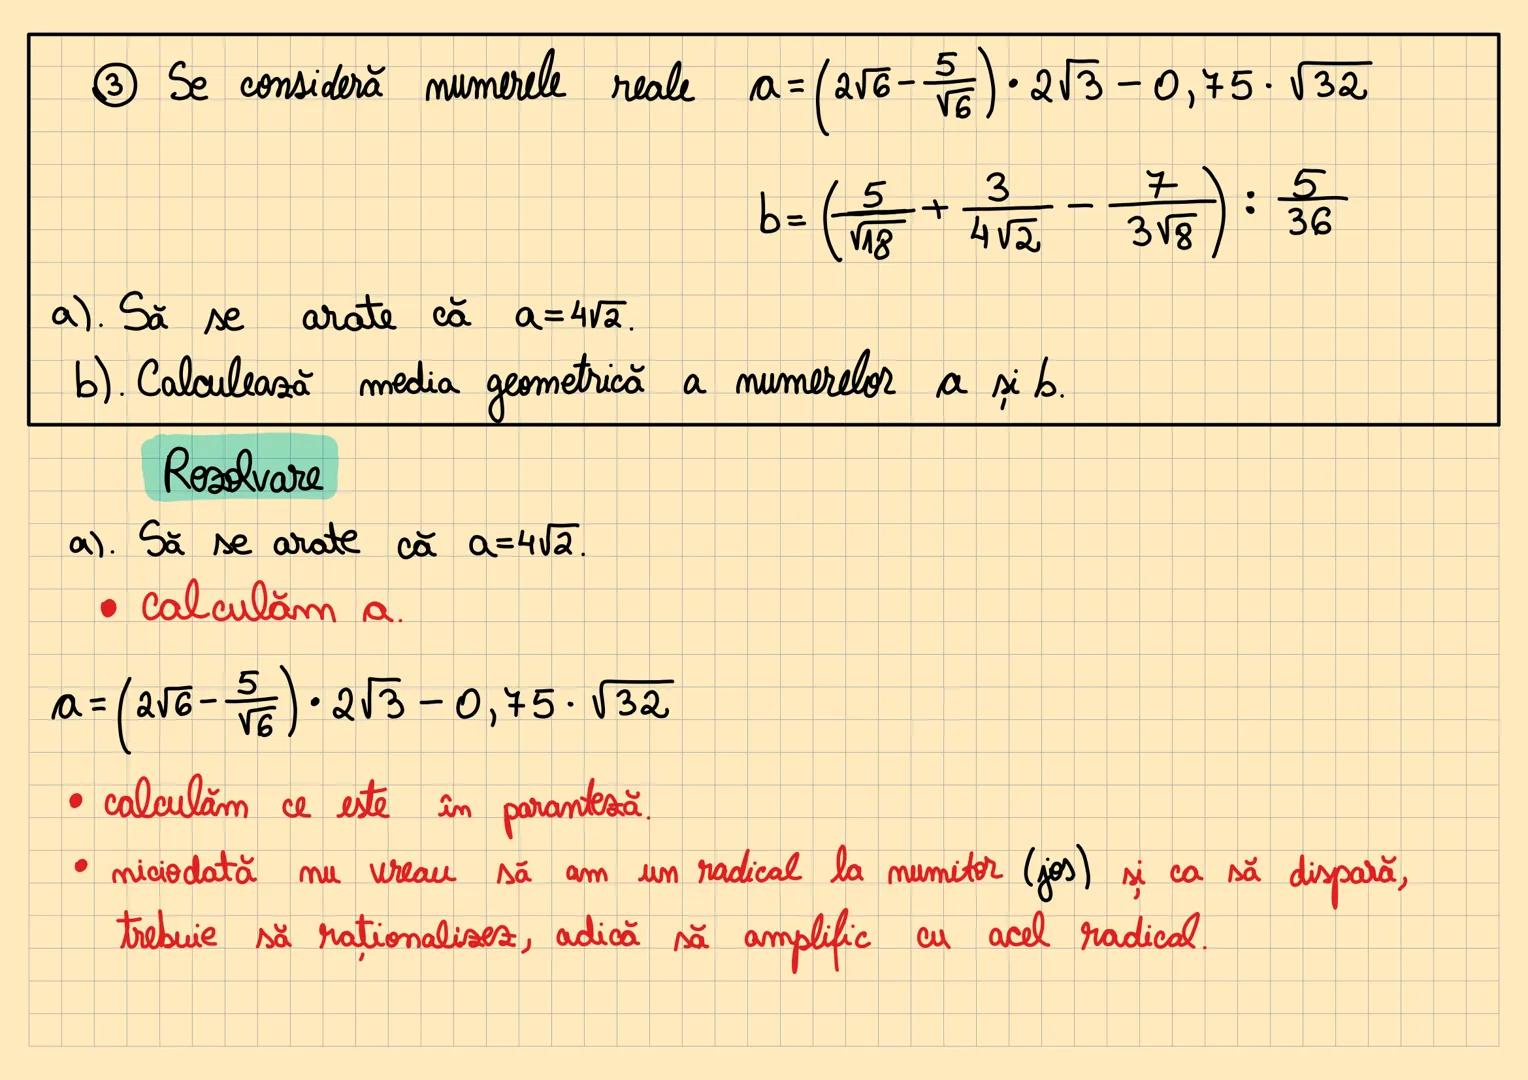 ③ Se consideră numerele reale a=(2√6-5/√6)·2√3-0,75·√32
b=(5/√18+3/4√2-7/3√8):5/36
a). Să se arate că a=4√2.
b). Calculează media geometrică a numerelor a și b.
Rezolvare
a). Să se arate că a=4√2.
• calculăm a.
a=(2√6-5/√6)·2√3-0,75·√32
• calculăm ce este în paranteză.
• niciodată nu vreau să am un radical la numitor (jos) și ca să dispară,
trebuie să raționalizez, adică să amplific cu acel radical.